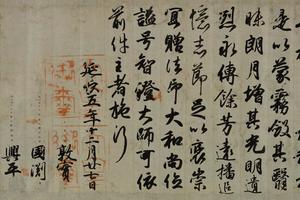 是以蒙霧斂其
朗月增其光明遺
烈永傳餘芳遠播追
憶志節足以褒崇
冝贈法印大和尚位
謚号智證大師可依
前件主者施行
延長五年十二月廿七日
敦實
國淵
興平